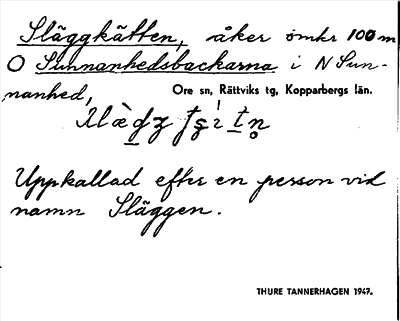 Släggkätten, åker omkr 100 m
O Sunnanhedsbackarna i N Sun-
nanhed,
Ore sn, Rättviks tg, Kopparbergs län.
Uppkallad efter en person vid
namn Släggen.
THURE TANNERHAGEN 1947.